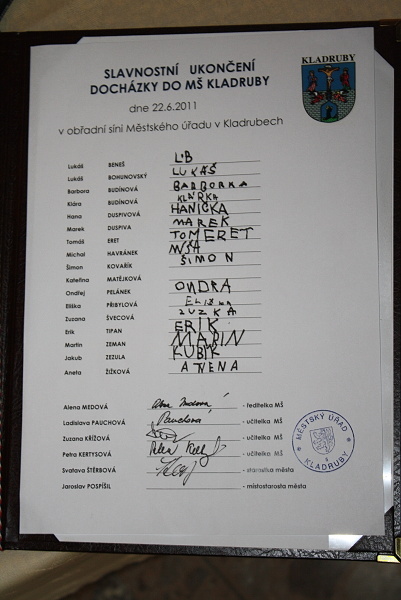 KLADRUBY
SLAVNOSTNÍ UKONČENÍ
DOCHÁZKY DO MŠ KLADRUBY
dne 22.6.2011
v obřadní síni Městského úřadu v Kladrubech
Lukáš BENEŠ L.B
Lukáš BOHUNOVSKÝ LUKÁŠ
Barbora BUDÍNOVÁ BARBORKA
Klára BUDÍNOVÁ KLÁRKA
Hana DUSPIVOVÁ HANIČKA
Marek DUSPIVA MAREK
Tomáš ERET TOM ERET
Michal HAVRÁNEK MÍŠA
Šimon KOVAŘÍK ŠIMON
Kateřina MATĚJKOVÁ
Ondřej PELÁNEK ONDRA
Eliška PŘIBYLOVÁ
Zuzana ŠVECOVÁ ZUZKA
Erik TIPAN ERIK
Martin ZEMAN MARIN
Jakub ZEZULA KUBÍK
Aneta ŽIŽKOVÁ
Alena MEDOVÁ Alena Medová - ředitelka MŠ
Ladislava PAUCHOVÁ Pauchová - učitelka MŠ
Zuzana KŘÍŽOVÁ - učitelka MŠ
Petra KERTYSOVÁ - učitelka MŠ
Svatava ŠTĚRBOVÁ - starostka města
Jaroslav POSPÍŠIL - místostarosta města
MĚSTSKÝ ÚŘAD
KLADRUBY